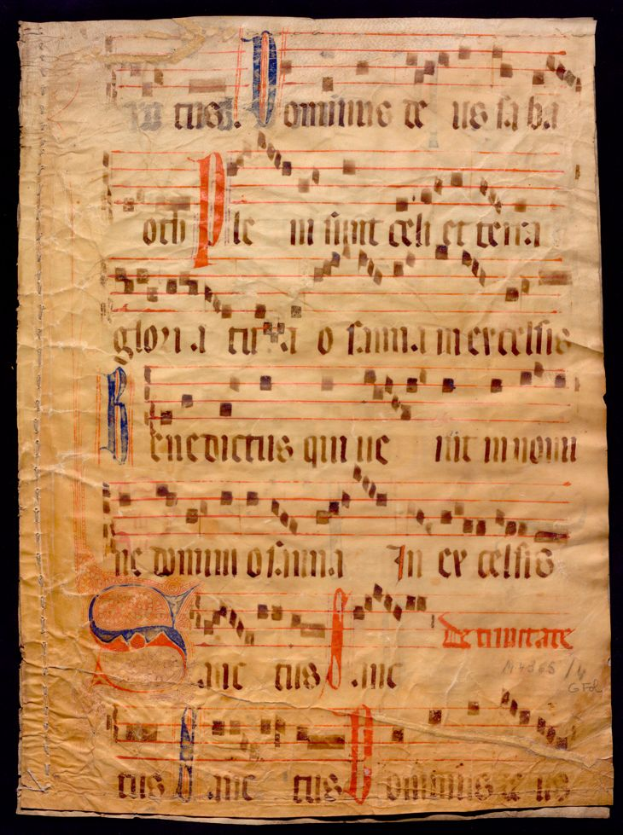 ctus. Dominus de us sa ba
oth Ple ni sunt celi et terra
glori a tu a o sanna in excelsis
Benedictus qui ue nit in nomi
ne domini osanna In ex celsis
De trinitate
Sanc tus Sanc
tus Sanc tus Dominus de us